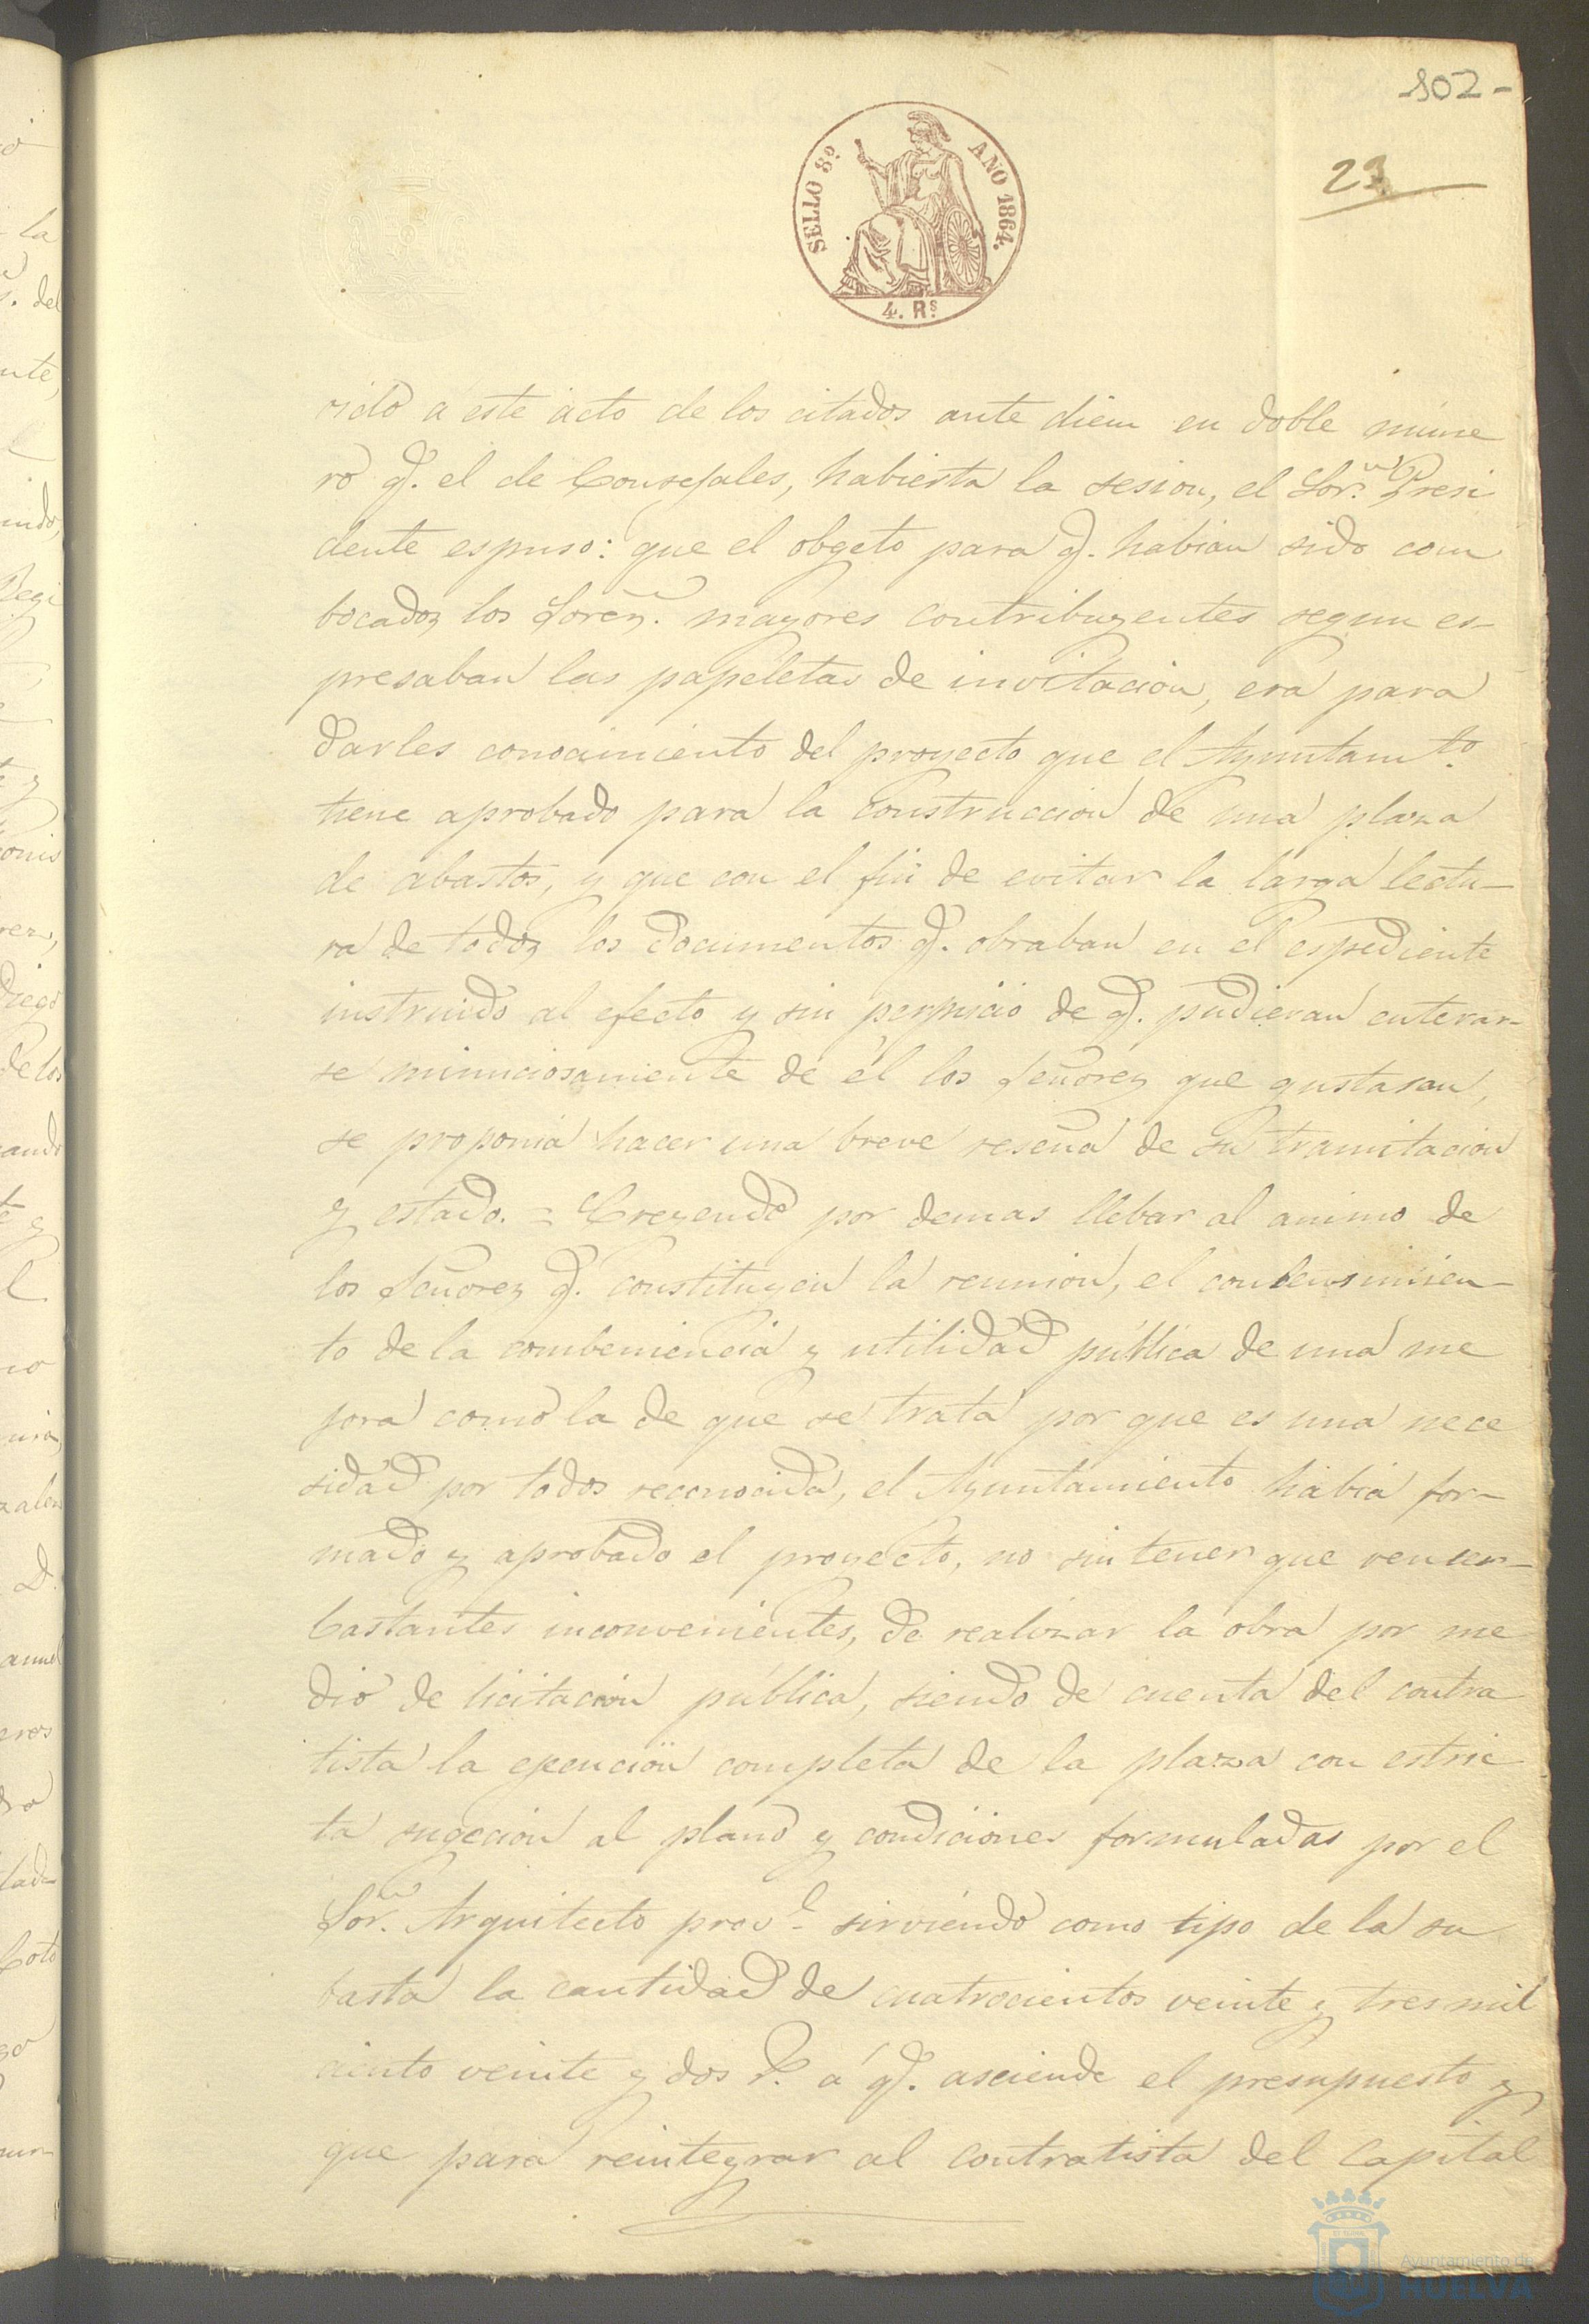 102-
23
SELLO 8º AÑO 1864.
4. Rs.
rido a este acto de los citados ante diem en doble nume
ro q. el de Consejales, habierta la sesion, el Sor. Presi
dente espuso: que el obgeto para q. habian sido com
bocados los Sores. mayores contribuyentes segun es-
presaban las papeletas de invitacion, era para
darles conocimiento del proyecto que el Ayuntamto.
tiene aprobado para la construccion de una plaza
de abastos, y que con el fin de evitar la larga lectu-
ra de todos los documentos q. obraban en el espediente
instruido al efecto y sin perjuicio de q. pudieran enterar-
se minuciosamente de él los señores que gustasan,
se proponia hacer una breve reseña de su tramitacion
y estado. = Creyendo por demas llebar al animo de
los Señores q. constituyen la reunion, el conbensimien-
to de la combeniencia y utilidad pública de una me
jora como la de que se trata por que es una nece
sidad por todos reconocida, el Ayuntamiento habia for-
mado y aprobado el proyecto, no sin tener que vencer
bastantes inconvenientes, de realizar la obra por me
dio de licitacion pública, siendo de cuenta del contra
tista la ejecucion completa de la plaza con estric
ta sugecion al plano y condiciones formuladas por el
Sor. Arquitecto provl. sirviendo como tipo de la su
basta la cantidad de cuatrocientos veinte y tres mil
ciento veinte y dos r. á q. asciende el presupuesto y
que para reintegrar al contratista del Capital
Ayuntamiento de
HUELVA